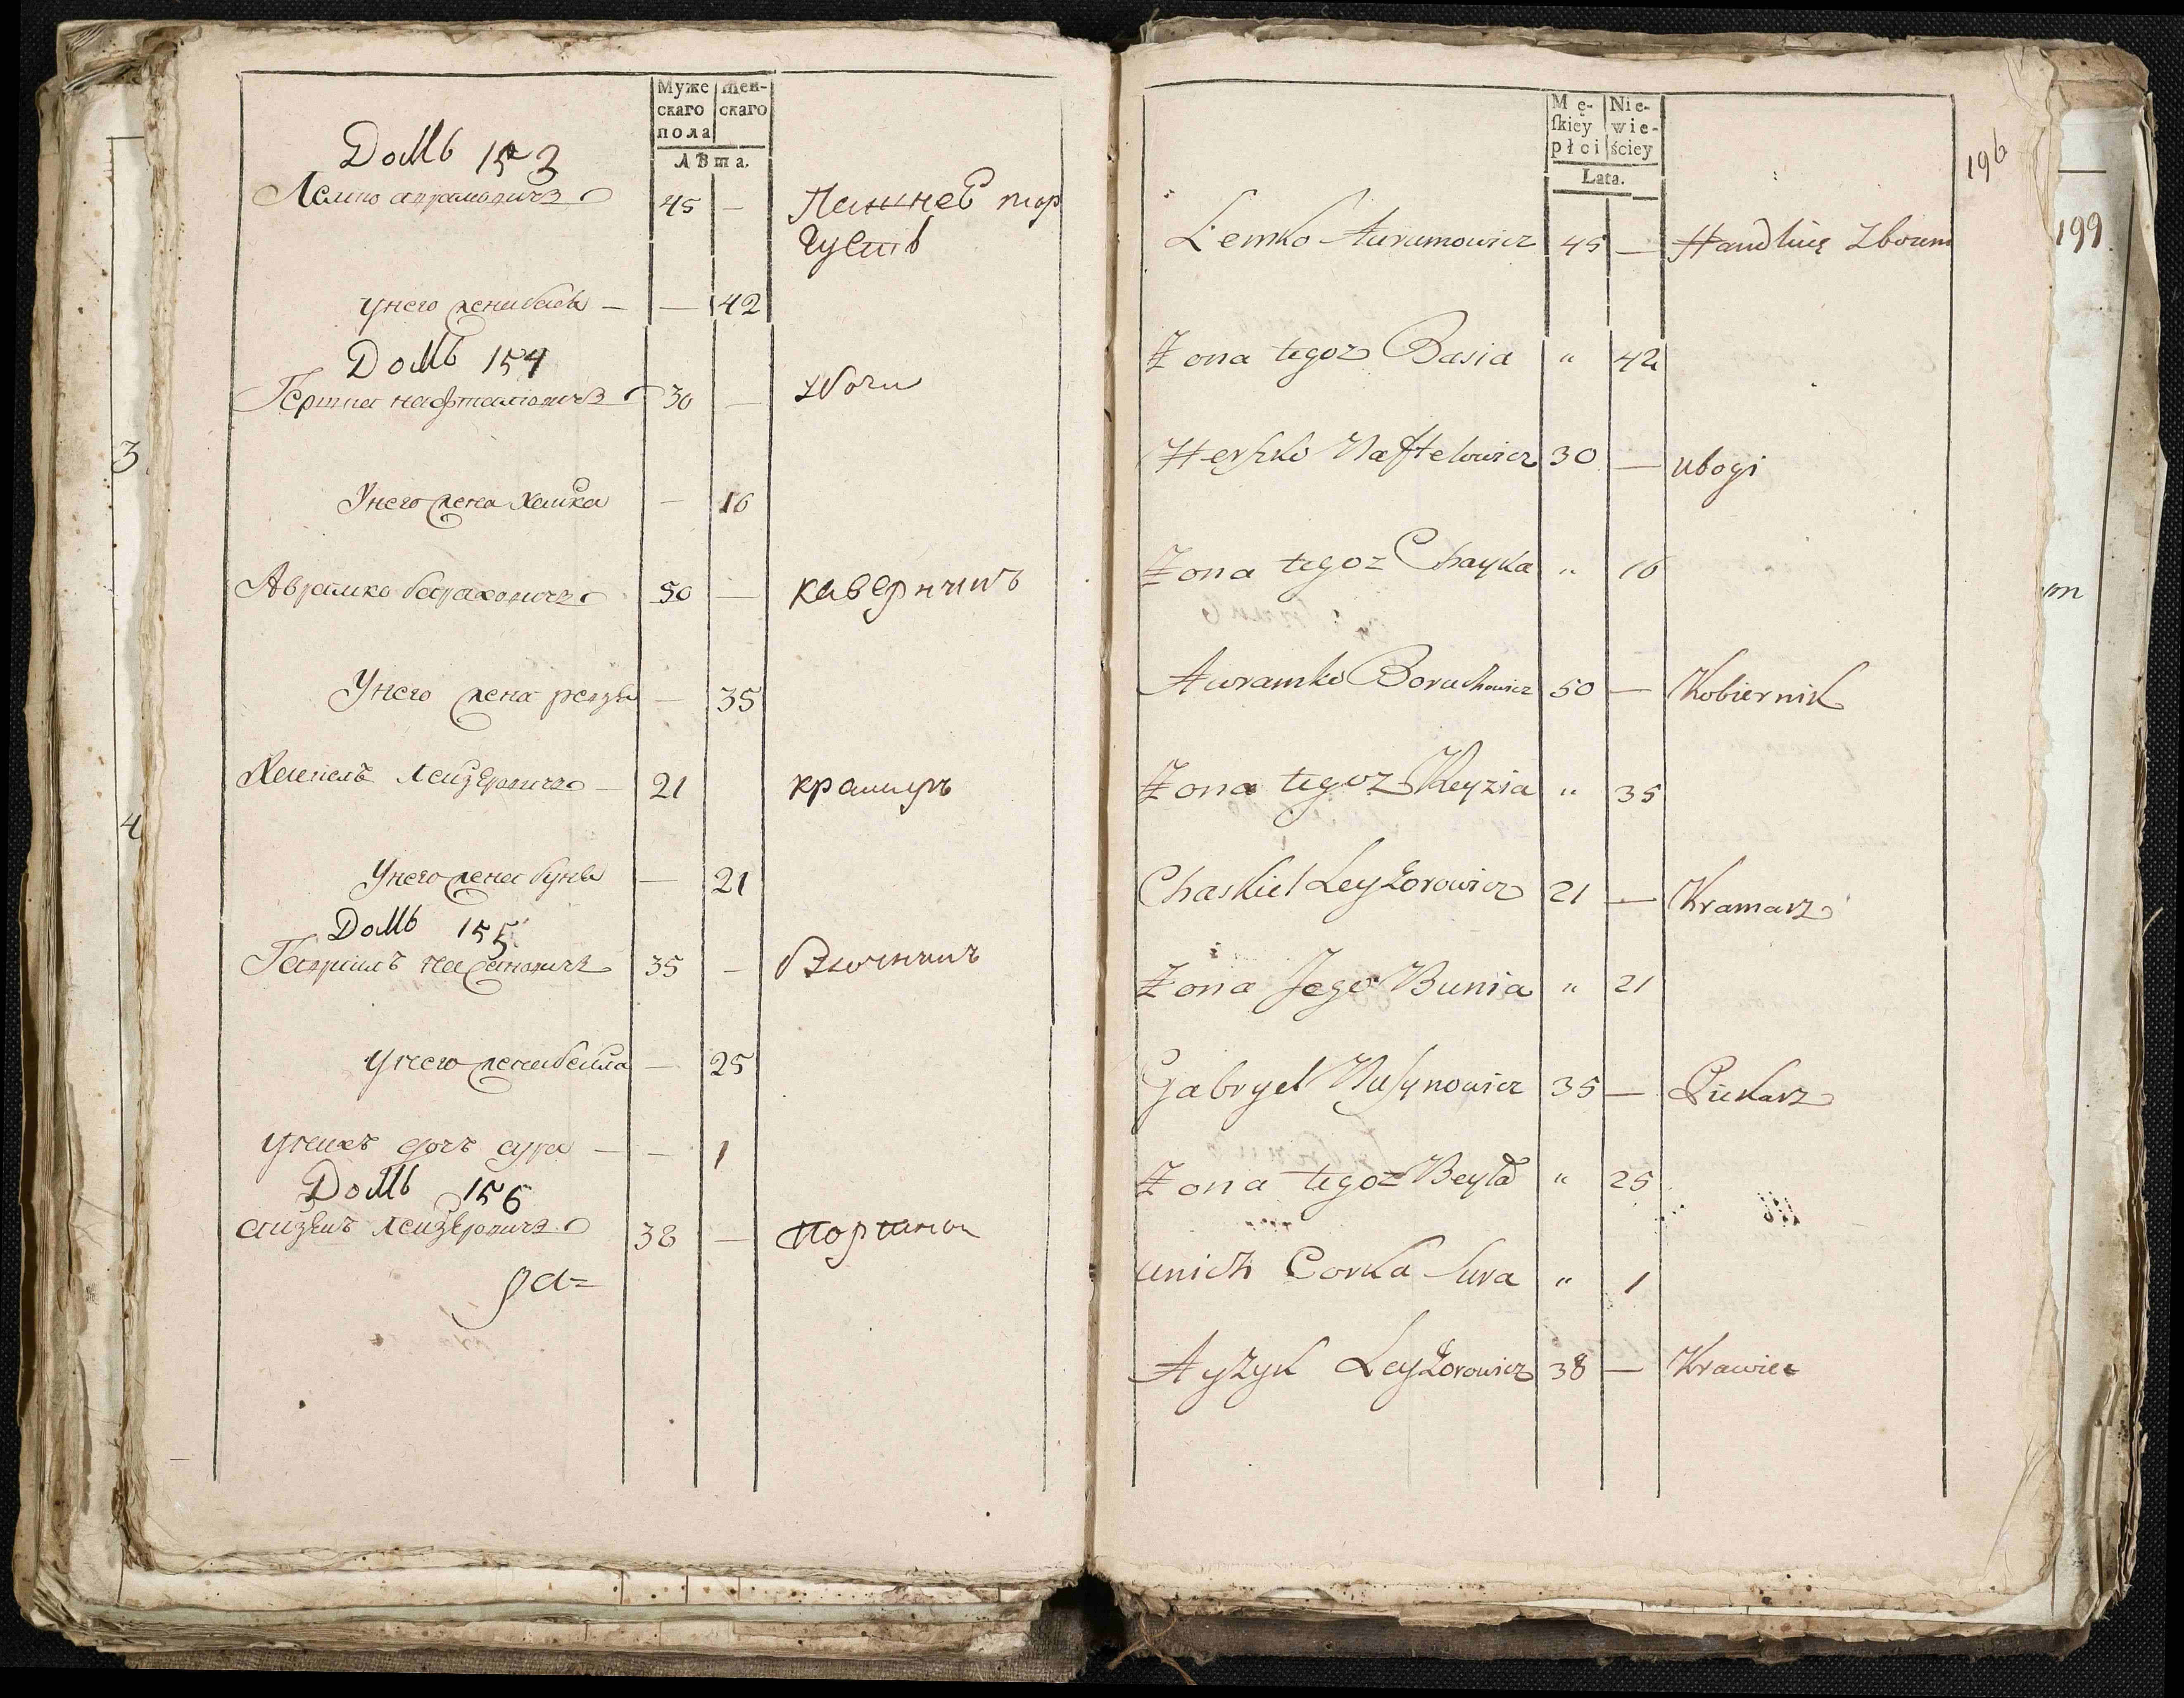 Муже
скаго
пола
жен-
скаго
Лѣта.
Домъ 153
Лемко аврамовичъ 45 — Пашнеб тор
гуетъ
унего жена бася — — 42
Домъ 154
Гершка нафталіовичъ 30 —
Унего жена хаика — 16
Аврамко борохович 50 — каверникъ
Унего жена рейзя — 35
Хаскель Леизеровичъ — 21 крамаръ
Унего жена буня — 21
Домъ 155
Гавриилъ насановичъ 35 —
унего жена беила — 25
унихъ дочъ сура — — 1
Домъ 156
аизикъ Леизеровичъ 38 — портнои
да=
3
4
Mę-
ſkiey
płci
Nie-
wie-
ściey
Lata.
196
199
Lemko Auramowicz 45 — Handluię Zbozem
Zona tegoz Basia " 42
Herszko Naftelowicz 30 — ubogi
Zona tegoz Chayka " 16
Awramko Boruchowicz 50 — Kobiernik
Zona tegoz Reyzia " 35
Chaskiel Leyzorowicz 21 — Kramarz
Zona Jego Bunia " 21
Gabryel Nusynowicz 35 — Piekarz
Zona tegoz Beyla " 25
unich Corka Sura " 1
Ayzyk Leyzorowicz 38 — Krawiec
ym